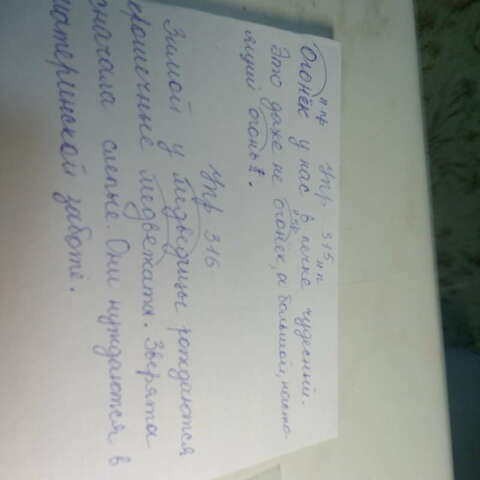 Упр 315
Огонёк у нас в печке чудесный.
Это даже не огонёк, а большой, насто
ящий огонь.
Упр 316
Зимой у медведицы рождаются
крошечные медвежата. Зверята
сначала слепые. Они нуждаются в
материнской заботе.